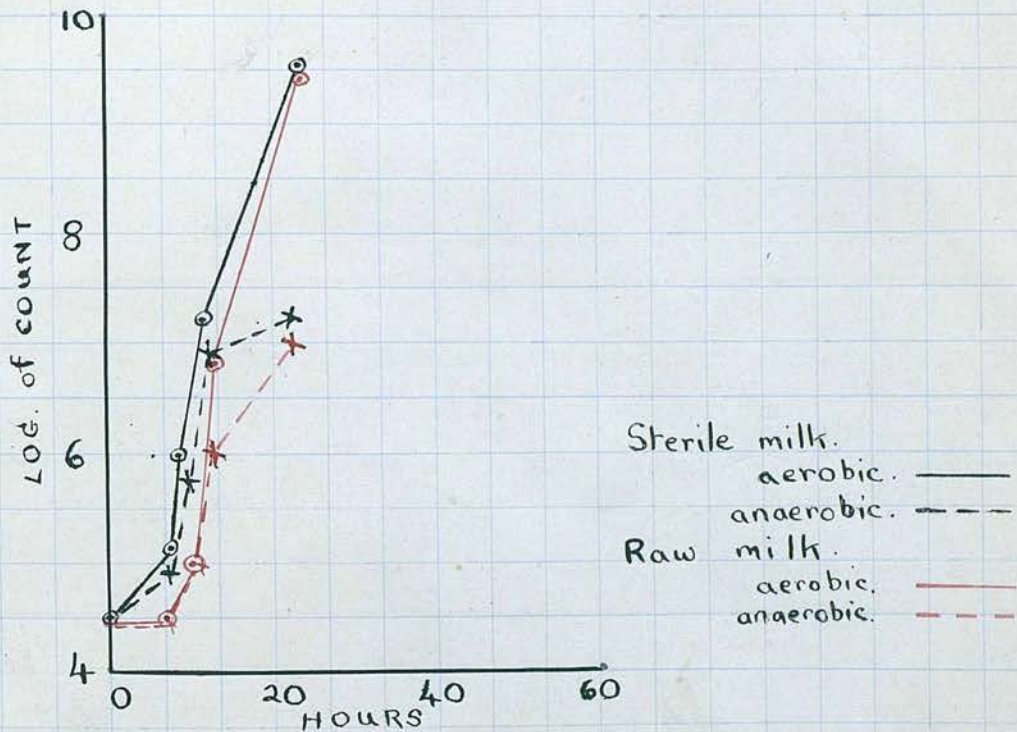 10
8
6
4
LOG. of COUNT
0 20 40 60
HOURS
Sterile milk.
aerobic.
anaerobic.
Raw milk.
aerobic.
anaerobic.